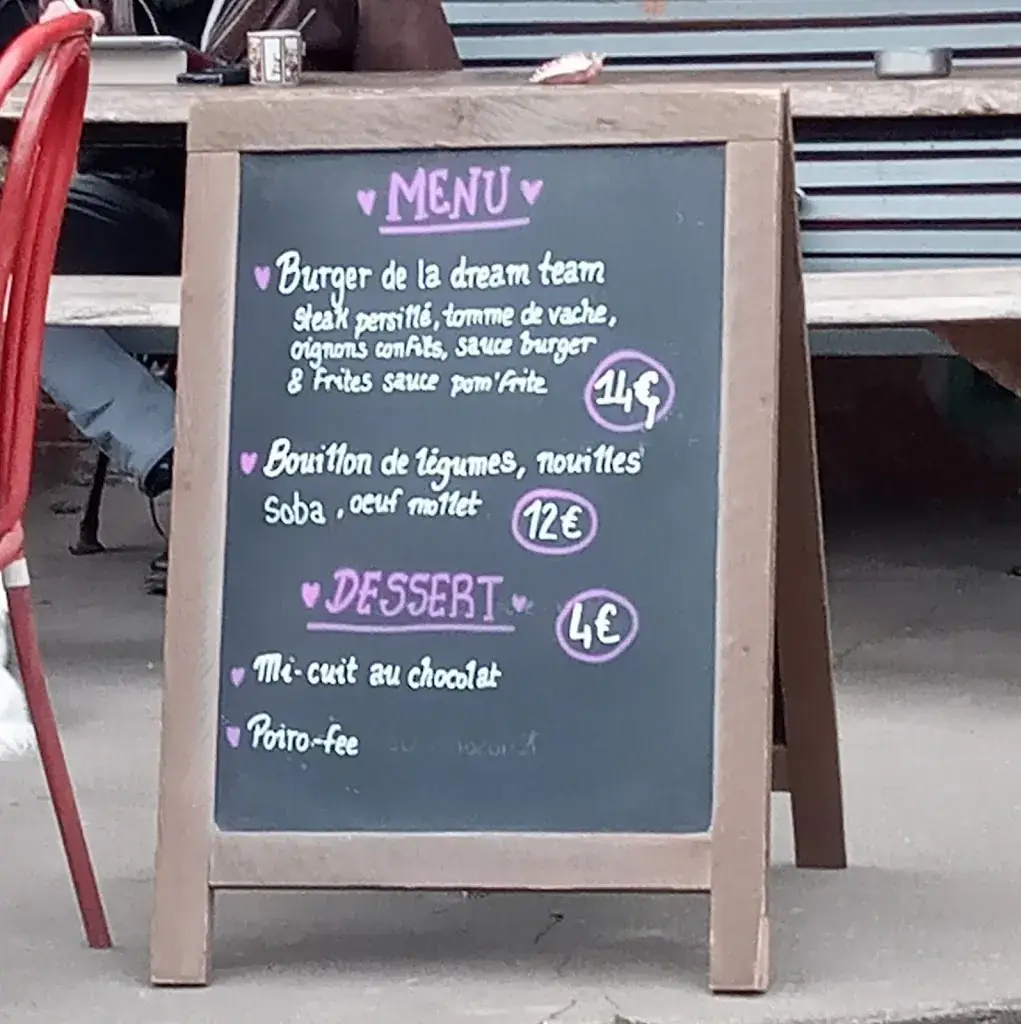 MENU
Burger de la dream team
steak persillé, tomme de vache,
oignons confits, sauce burger
& Frites sauce pom'frite
14€
Bouillon de légumes, nouilles
Soba, oeuf mollet
12€
DESSERT
4€
Mi-cuit au chocolat
Poiro-fee